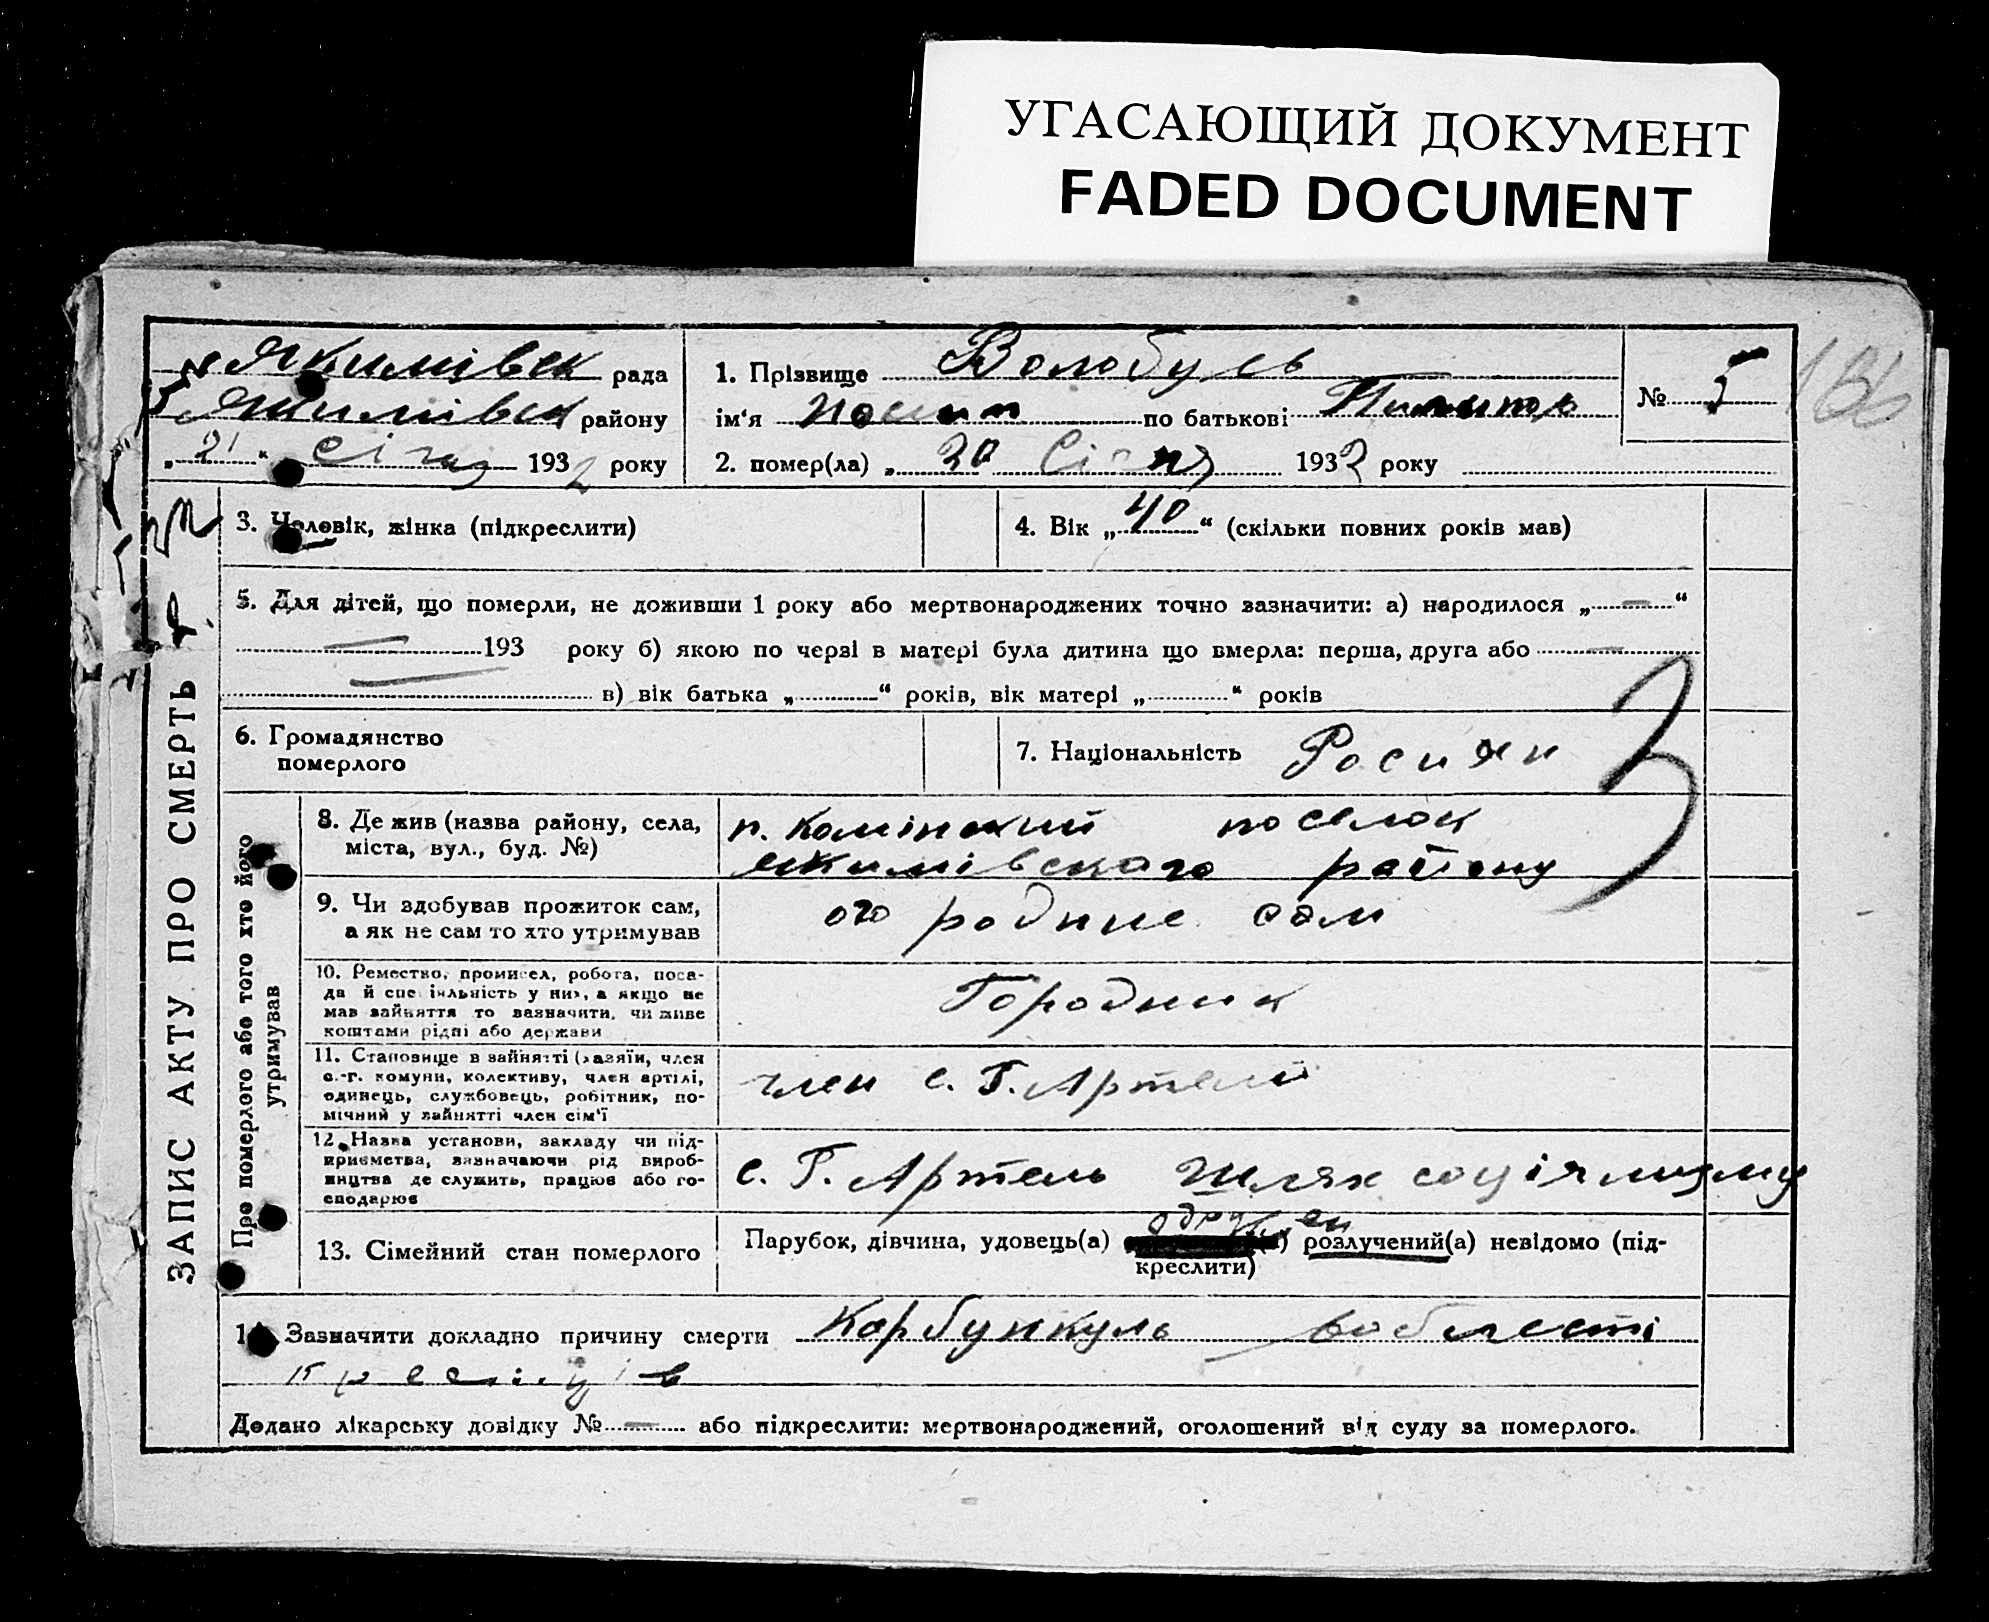 УГАСАЮЩИЙ ДОКУМЕНТ
FADED DOCUMENT
Якимівск рада
Якимівск району
„21“ січня 1932 року
1. Прізвище Волобуєв
ім'я Йосип по батькові
№ 5
186
2. помер(ла) „20 Січня 1932 року
ЗАПИС АКТУ ПРО СМЕРТЬ
3. Чоловік, жінка (підкреслити)
4. Вік „40“ (скільки повних років мав)
5. Для дітей, що померли, не доживши 1 року або мертвонароджених точно зазначити: а) народилося „—“
— 193 року б) якою по черзі в матері була дитина що вмерла: перша, друга або —
— в) вік батька „ “ років, вік матері „ “ років
6. Громадянство
померлого
7. Національність Росиян
3
Про померлого або того хто його
утримував
8. Де жив (назва району, села,
міста, вул., буд. №)
п. посьолок
якимівского району
9. Чи здобував прожиток сам,
а як не сам то хто утримував
родине сам
10. Ремество, промисел, робота, поса-
да й спеціяльність у них, а якщо не
мав зайняття то зазначити, чи живе
коштами рідні або держави
Городник
11. Становище в зайнятті (хазяїн, член
с.-г. комуни, колективу, член артілі,
одинець, службовець, робітник, по-
мічний у зайнятті член сім'ї
член с. Г. Артели
12. Назва установи, закладу чи під-
приємства, зазначаючи рід вироб-
ництва де служить, працює або го-
сподарює
с. Г. Артель Шлях соціялизму
13. Сімейний стан померлого
одружен
Парубок, дівчина, удовець(а) розлучений(а) невідомо (під-
креслити)
Зазначити докладно причину смерти Карбункуль
Додано лікарську довідку № — або підкреслити: мертвонароджений, оголошений від суду за померлого.